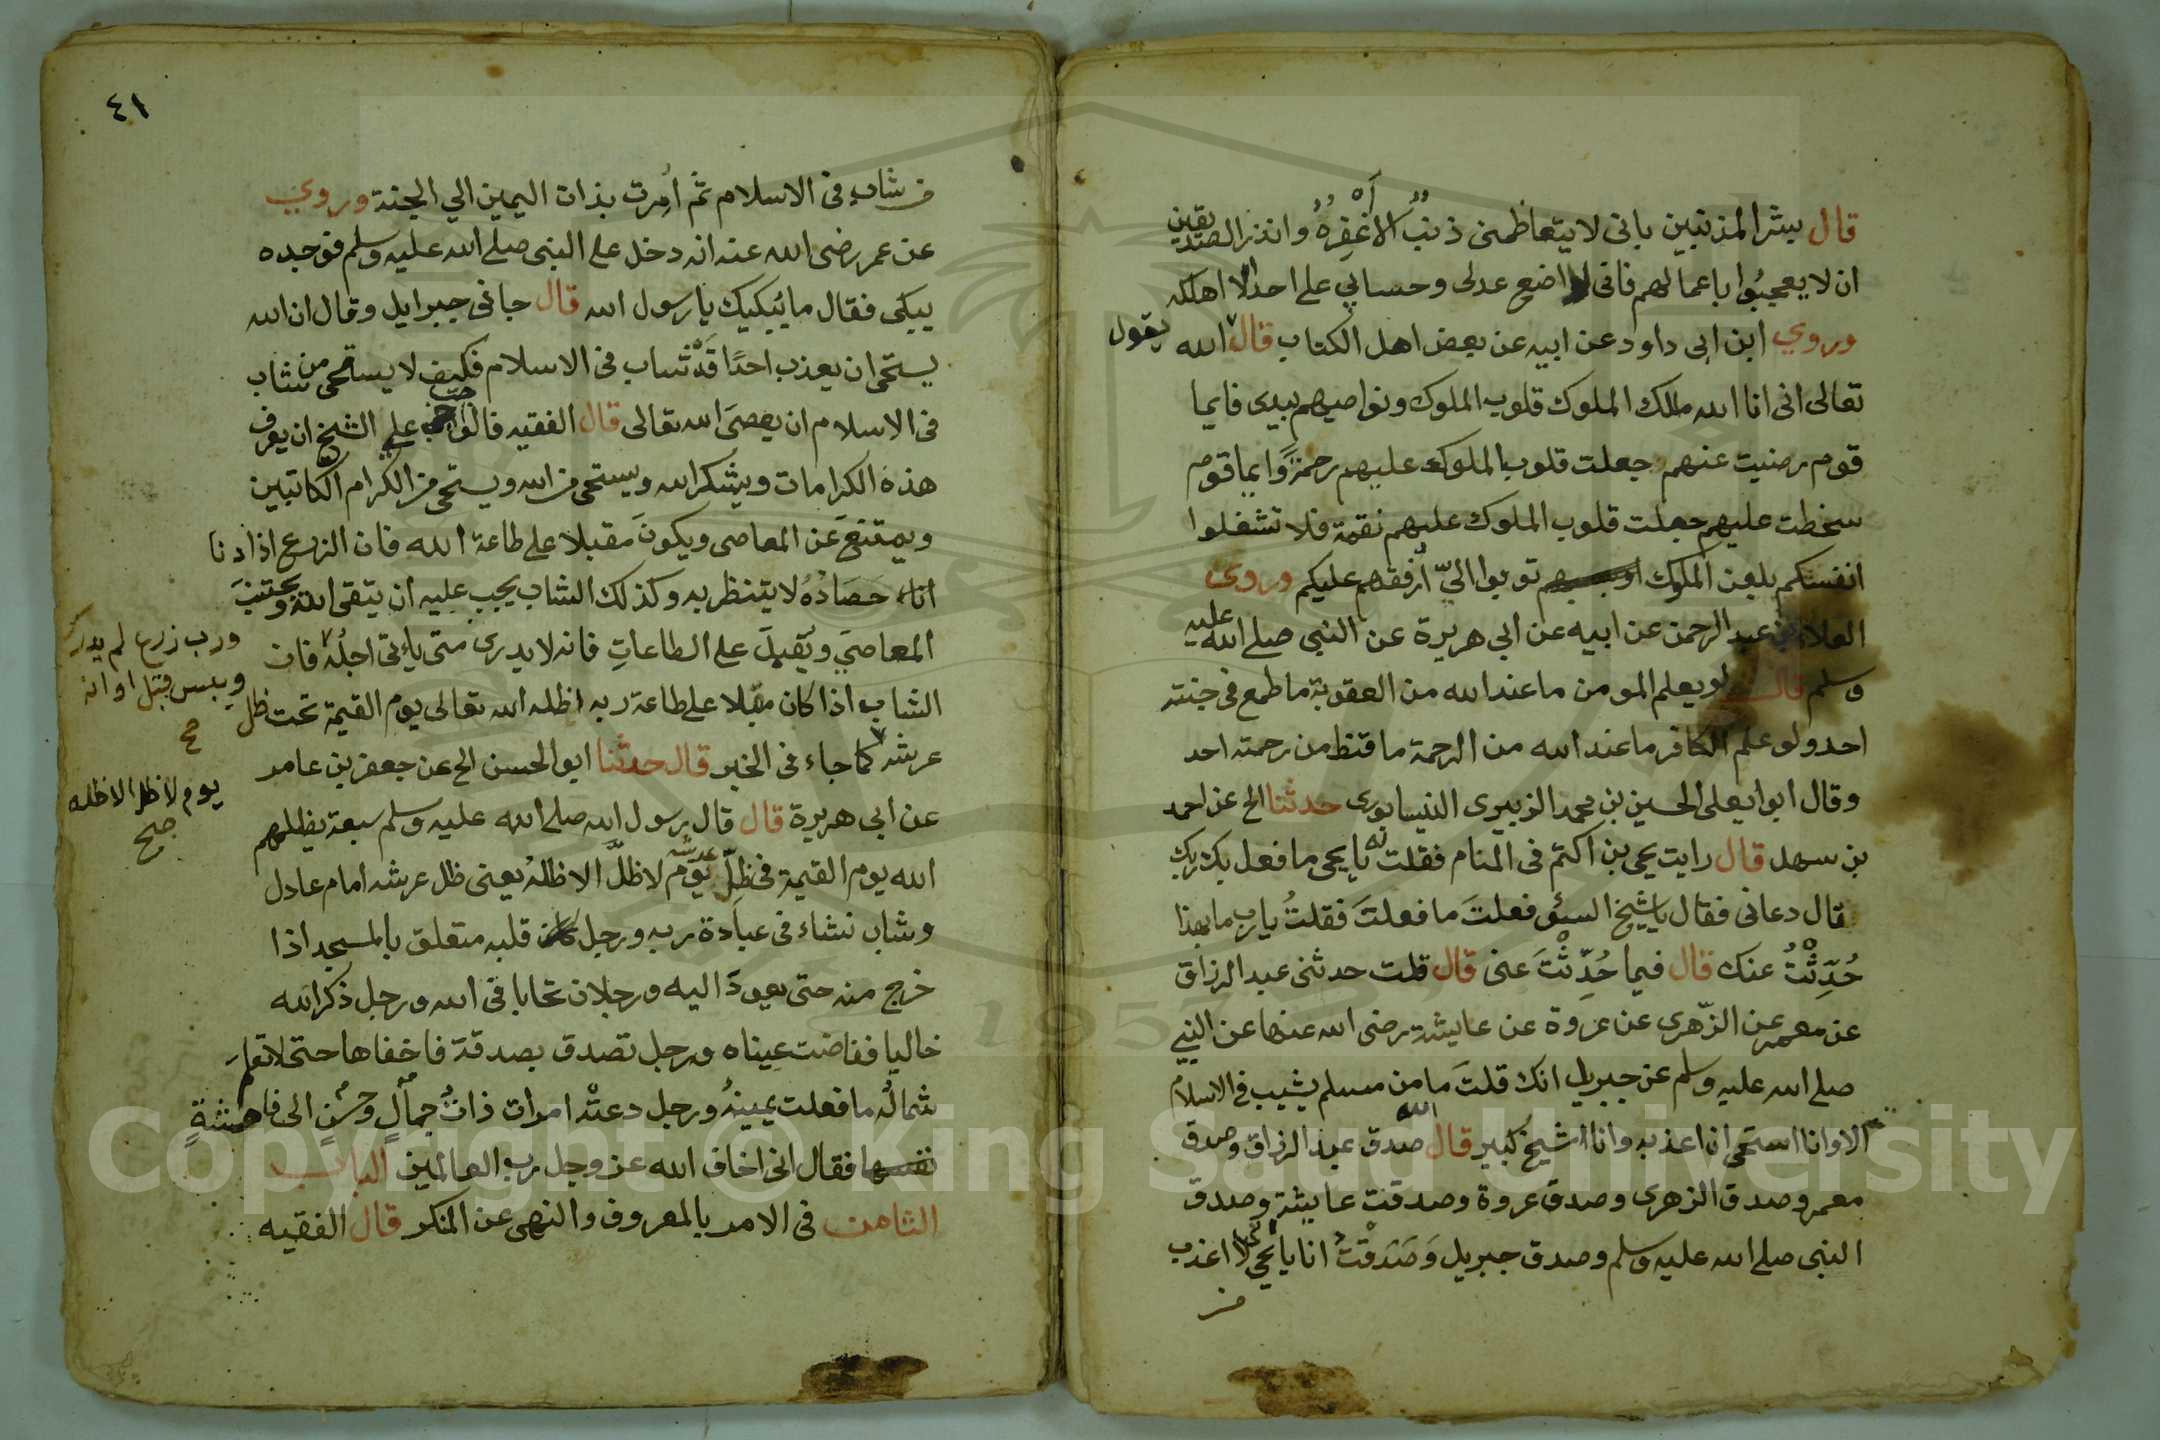 قال بشر المذنبين باني لا يتعاظمني ذنبٌ الا أغْفِرُهُ وانذر الصديقين
ان لا يعجبُوا باعمالهم فاني لا اضع عدلى وحسابي على احد الا اهلكه
وروي ابن ابى داود عن ابيه عن بعض اهل الكتاب قال الله يقول
تعالى انى انا الله مالك الملوك قلوب الملوك ونواصيهم بيدى فايما
قوم رضيت عنهم جعلت قلوب الملوك عليهم رحمةً وايما قوم
سخطت عليهم جعلت قلوب الملوك عليهم نقمة فلا تشغلوا
انفسكم بلعن الملوك توبوا اليّ أرفقهم عليكم وروى
العلاء بن عبد الرحمن عن ابيه عن ابي هريرة عن النبي صلى الله عليه
وسلم قال لو يعلم المومن ما عند الله من العقوبة ما طمع فى جنته
احد ولو علم الكافر ما عند الله من الرحمة ما قنط من رحمته احد
وقال ابوا يعلى الحسين بن محمد الزبيرى النيسابورى حدثنا الخ عن احمد
بن سهل قال رايت يحي بن اكثم فى المنام فقلت له يا يحي ما فعل بك ربك
قال دعانى فقال يا شيخ السوء فعلتَ ما فعلتَ فقلتُ يا رب ما بهذا
حُدِّثْتُ عنك قال فيما حُدِّثْتَ عنى قال قلت حدثنى عبد الرزاق
عن معمر عن الزّهرى عن عروة عن عايشة رضى الله عنها عن النبي
صلى الله عليه وسلم عن جبريل انك قلتَ ما من مسلم يشيب في الاسلام
الا وانا استحي ان اعذبه وانا شيخ كبير قال الله صدق عبد الرزاق وصدق
معمر وصدق الزهرى وصدق عروة وصدقت عايشة وصدق
النبى صلى الله عليه وسلم وصدق جبريل وَصَدَقْتُ انا يا يحي لا اعذب
من
٤١
من شاب فى الاسلام ثم أمرت بذات اليمين الي الجنة وروي
عن عمر رضى الله عنه انه دخل على النبى صلى الله عليه وسلم فوجده
يبكى فقال ما يُبكيك يا رسول الله قال جاءنى جبرايل وقال ان الله
يستحى ان يعذب احدًا قَدْ شاب فى الاسلام فكيف لا يستحى من شاب
فى الاسلام ان يعصىَ الله تعالى قال الفقيه فالواجب على الشيخ ان يعرف
هذه الكرامات ويشكر الله ويستحى من الله ويستحى من الكرام الكاتبين
ويمتنعَ عَن المعاصى ويكونَ مقبلا على طاعة الله فان الزرع اذا دنا
اتاه حَصَادُهُ لا يتنظر به وكذلك الشاب يجب عليه ان يتقى الله ويجتنبَ
المعاصَي ويُقبِلَ على الطاعاتِ فانه لا يدرى متى يإتى اجلُهُ فان
ورب زرع لم يدرك
ويبس قبل اوانه
صح
الشاب اذا كان مقبلا على طاعة ربه اظله الله تعالى يوم القيمة تحت ظل
عرشه كما جاء فى الخبر قال حدثنا ابو الحسن الخ عن جعفر بن عامر
يوم لا ظل الا ظله
صح
عن ابى هريرة قال قال رسول الله صلى الله عليه وسلم سبعة يظلهم
الله يوم القيمة فى ظلّ عرشه يوم لا ظلّ الا ظلهُ يعنى ظل عرشه امام عادل
وشاب نشاء فى عبادة ربه ورجل كان قلبه متعلق بالمسجد اذا
خرج منه حتى يعودَ اليه ورجلان تحابا فى الله ورجل ذكر الله
خاليا ففاضت عيناه ورجل تصدق بصدقة فاخفاها حتى لا تعلم
شمالُه ما فعلت يمينهُ ورجل دعتْه امرات ذاتُ جمالٍ وحُسْنٍ الى فاحشةٍ
نفسها فقال انى اخاف الله عز وجل رب العالمين الباب
الثامن فى الامر بالمعروف والنهى عن المنكر قال الفقيه
Copyright © King Saud University
1957